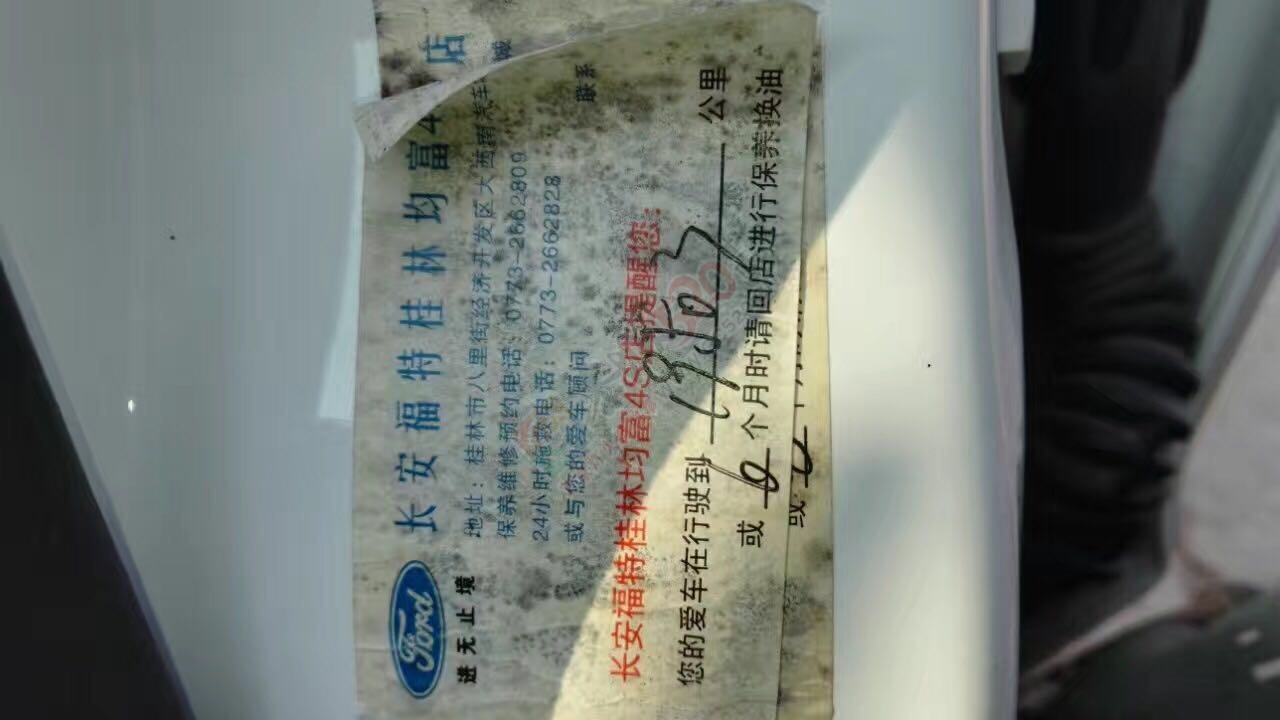 Ford
进无止境
长安福特桂林均富4 店
地址：桂林市八里街经济开发区大西南汽车 城
保养维修预约电话：0773-2662809
24小时施救电话：0773-2662828
或与您的爱车顾问 联系
长安福特桂林均富4S店提醒您：
您的爱车在行驶到 公里
或 6 个月时请回店进行保养换油
或